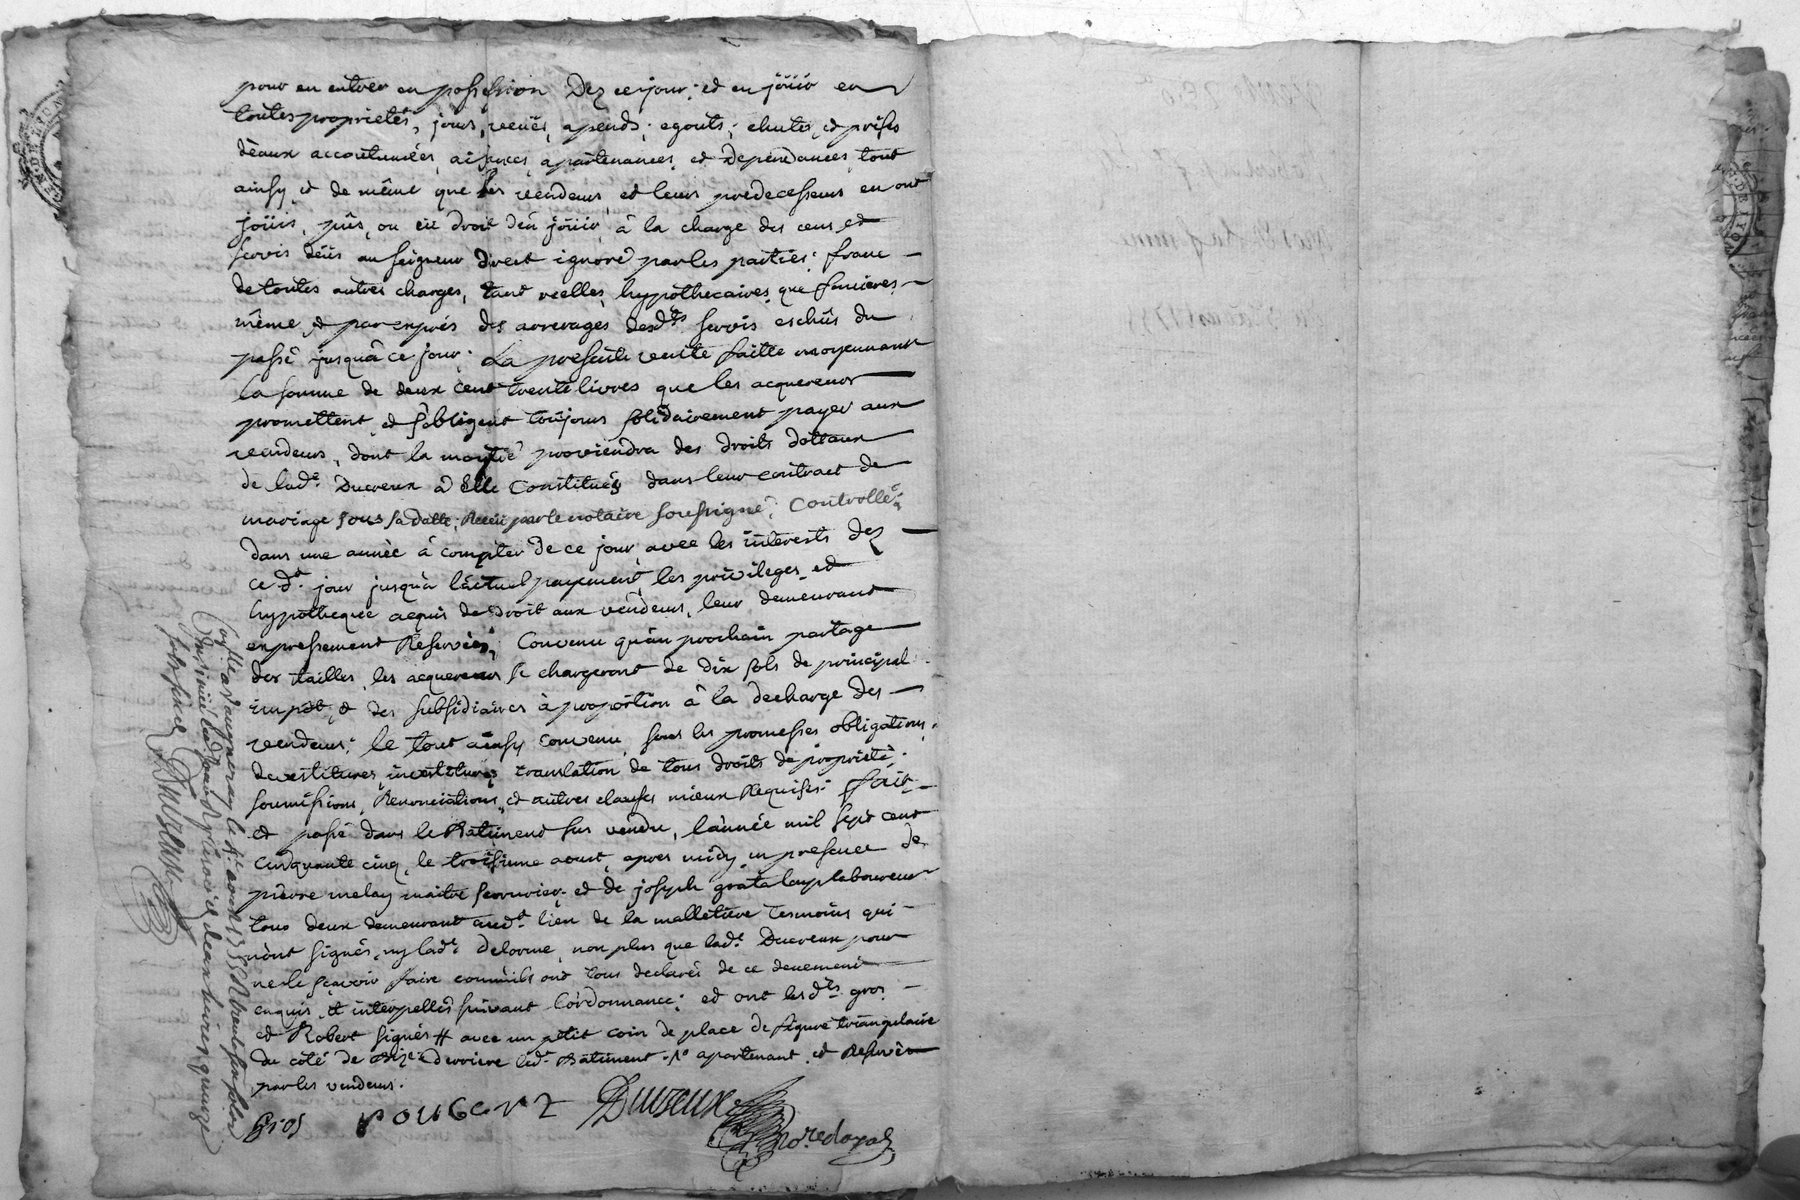 pour en entrer en possession Dez ce jour; et en joüir en
toutes proprietés, jours, veües, apends; egouts; chutes, et prises
d'eaux accoutumées, aisances, apartenances, et dependances, tout
ainsy, et de même que les vendeurs, et leurs predecesseurs en ont
joüis, pûs, ou eü droit d'en joüir, à la charge des cens, et
servis deüs au seigneur direct ignoré par les parties; franc
de toutes autres charges, tant reelles, hypothecaires, que foncieres
même, et par exprés des arrerages desdts servis eschûs du
passé jusqu'à ce jour; La presente vente faitte moyennant
la somme de deux cent trente livres que les acquereurs
promettent, et s'obligent toûjours solidairement payer aux
vendeurs, dont la moytié proviendra des droits dottaux
de lade Ducreux à Elle Constitués dans leur contract de
mariage sous sa datte, Receü par le notaire soussigné, Controllé;
dans une année à compter de ce jour, avec les interests dez
ce dt jour jusqu'à l'actuel payement, les privileges, et
hypotheque acquis de droit aux vendeurs, leur demeurant
expressement Reservées; Convenu qu'au prochain partage
des tailles, les acquereurs se chargeront de dix sols de principal
impôt, et des subsidiaires à proportion à la decharge des
vendeurs; le tout ainsy convenu, sous les promesses obligations,
devestitures, investitures, translation de tous droits de proprieté;
soumissions, Renonciations, et autres clauses mieux Requises; fait
et passé dans le Batiment sus vendu, l'année mil sept cent
cinquante cinq, le troisieme aoust, apres midy, en presence de
pierre melay maitre serrurier, et de joseph grataloup laboureur
tous deux demeurant audt lieu de la malletiere tesmoins qui
n'ont signés, ny lade Delorme, non plus que lade Ducreux pour
ne le sçavoir faire comm'ils ont tous declarés de ce deuement
enquis, et interpellés suivant l'ordonnance; et ont lesdts gros
et Robert signés # avec un petit coin de place de figure triangulaire
du côté de Bize derriere ledt Batiment apartenant, et Reservé
par les vendeurs.
Gros Roubert Duvreux
no.re royal
Conlle a vaugneray le 1755 Rt trente six sols
Insinué led. jour
sols six den Dusreux